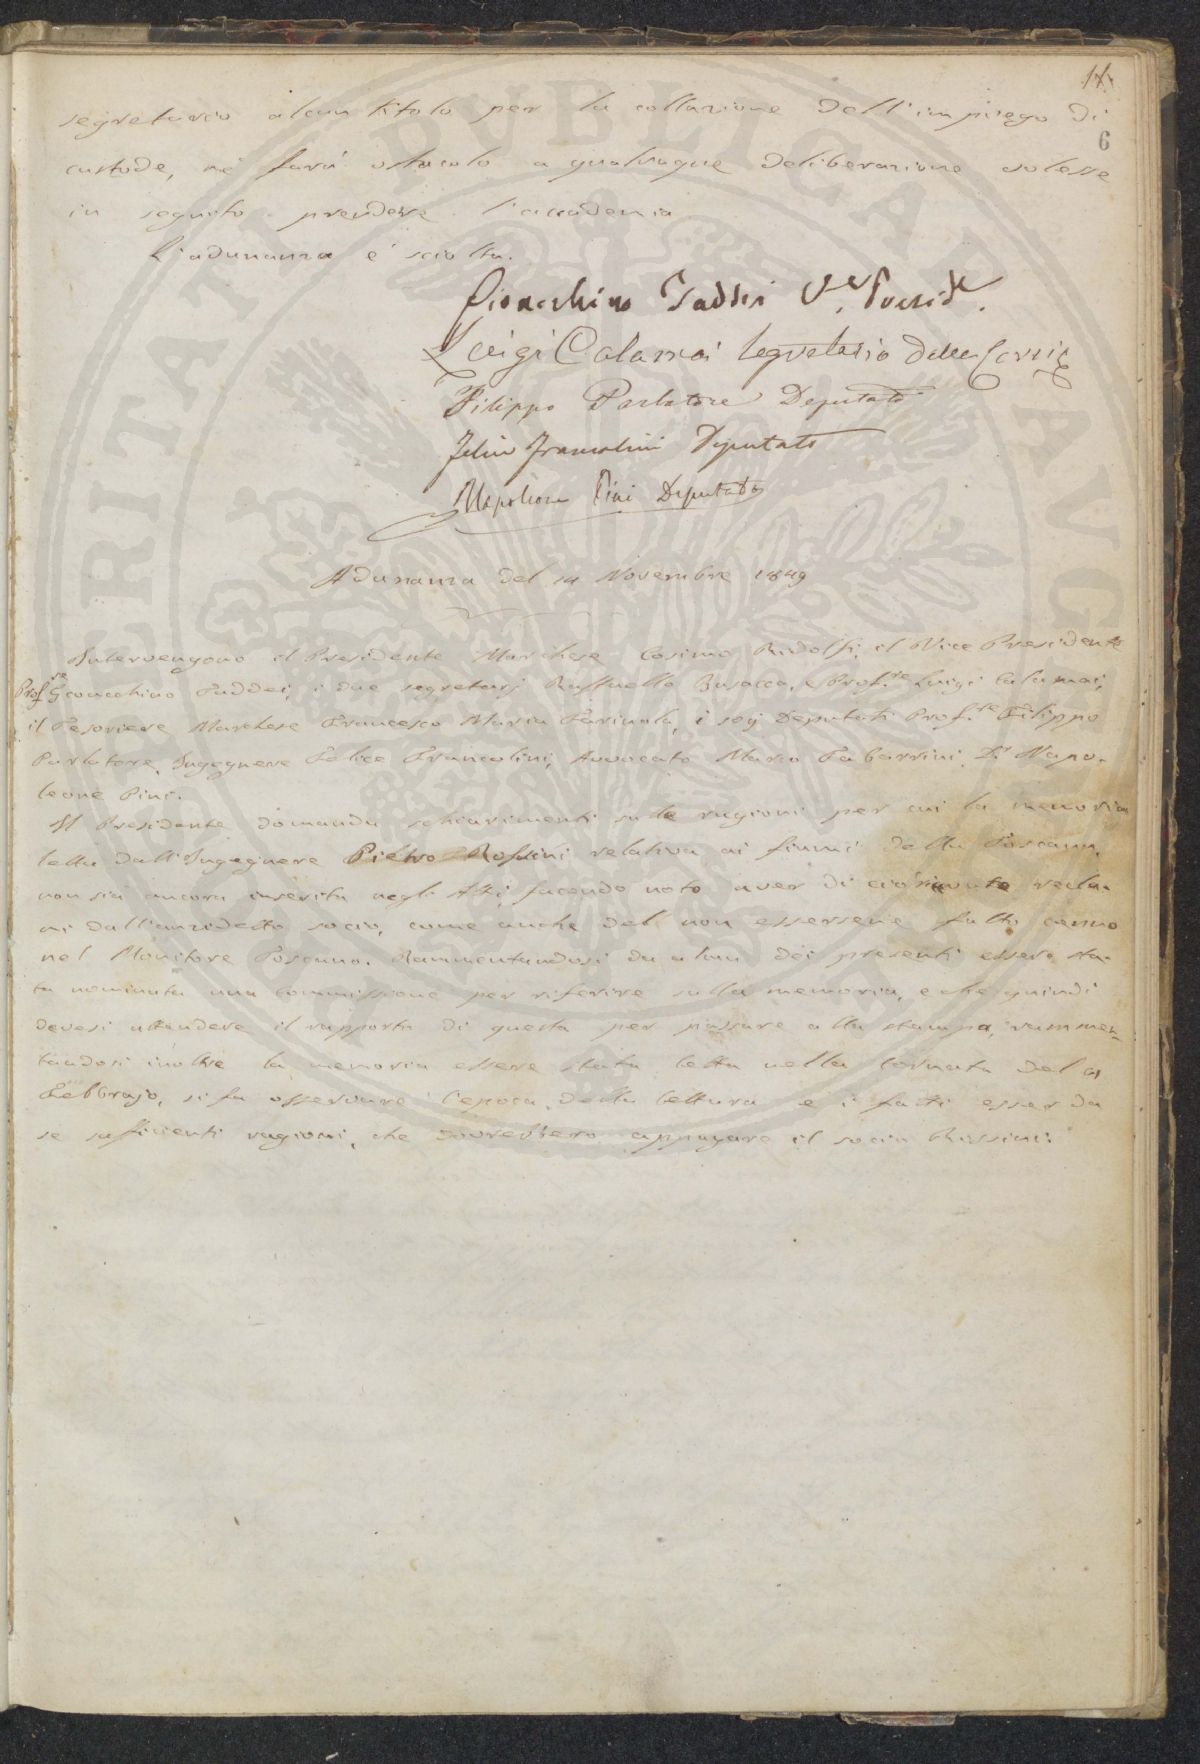 11
6
segretario alcun titolo per la collazione dell'impiego di
custode, nè farà ostacolo a qualunque deliberazione volesse
in seguito prendere l'accademia
L'adunanza è sciolta.
Gioacchino Taddei V.e Presid.e
Luigi Calamai Segretario delle Corrisp.
Filippo Parlatore Deputato
Felice Francolini Deputato
Napoleone Pini Deputato
Adunanza del 14 Novembre 1849
Intervengono il Presidente Marchese Cosimo Ridolfi, il Vice Presidente
Prof.re Gioacchino Taddei, i due segretarj Raffaello Busacca, e Prof.re Luigi Calamai,
il Tesoriere Marchese Francesco Maria Farinola, i sigg Deputati Prof.re Filippo
Parlatore, Ingegnere Felice Francolini, Avvocato Marco Tabarrini, D.r Napo-
leone Pini.
Il Presidente domanda schiarimenti sulle ragioni per cui la memoria
letta dall'Ingegnere Pietro Rossini relativa ai fiumi della Toscana,
non sia ancora inserita negli Atti facendo noto aver di ciò avute recla-
mi dall'anzidetto socio, come anche del non essersene fatti cenno
nel Monitore Toscano. Rammentandosi da alcun dei presenti essere sta-
ta nominata una commissione per riferire sulla memoria, e che quindi
devesi attendere il rapporto di questa per passare alla stampa, rammen-
tandosi inoltre la memoria essere stata letta nella tornata del
Febbrajo, si fa osservare l'epoca della lettura e i fatti esser da
se suficienti ragioni, che dovrebbero appagare il socio Rossini.
PERITATI PUBLICAE AUGENDAE